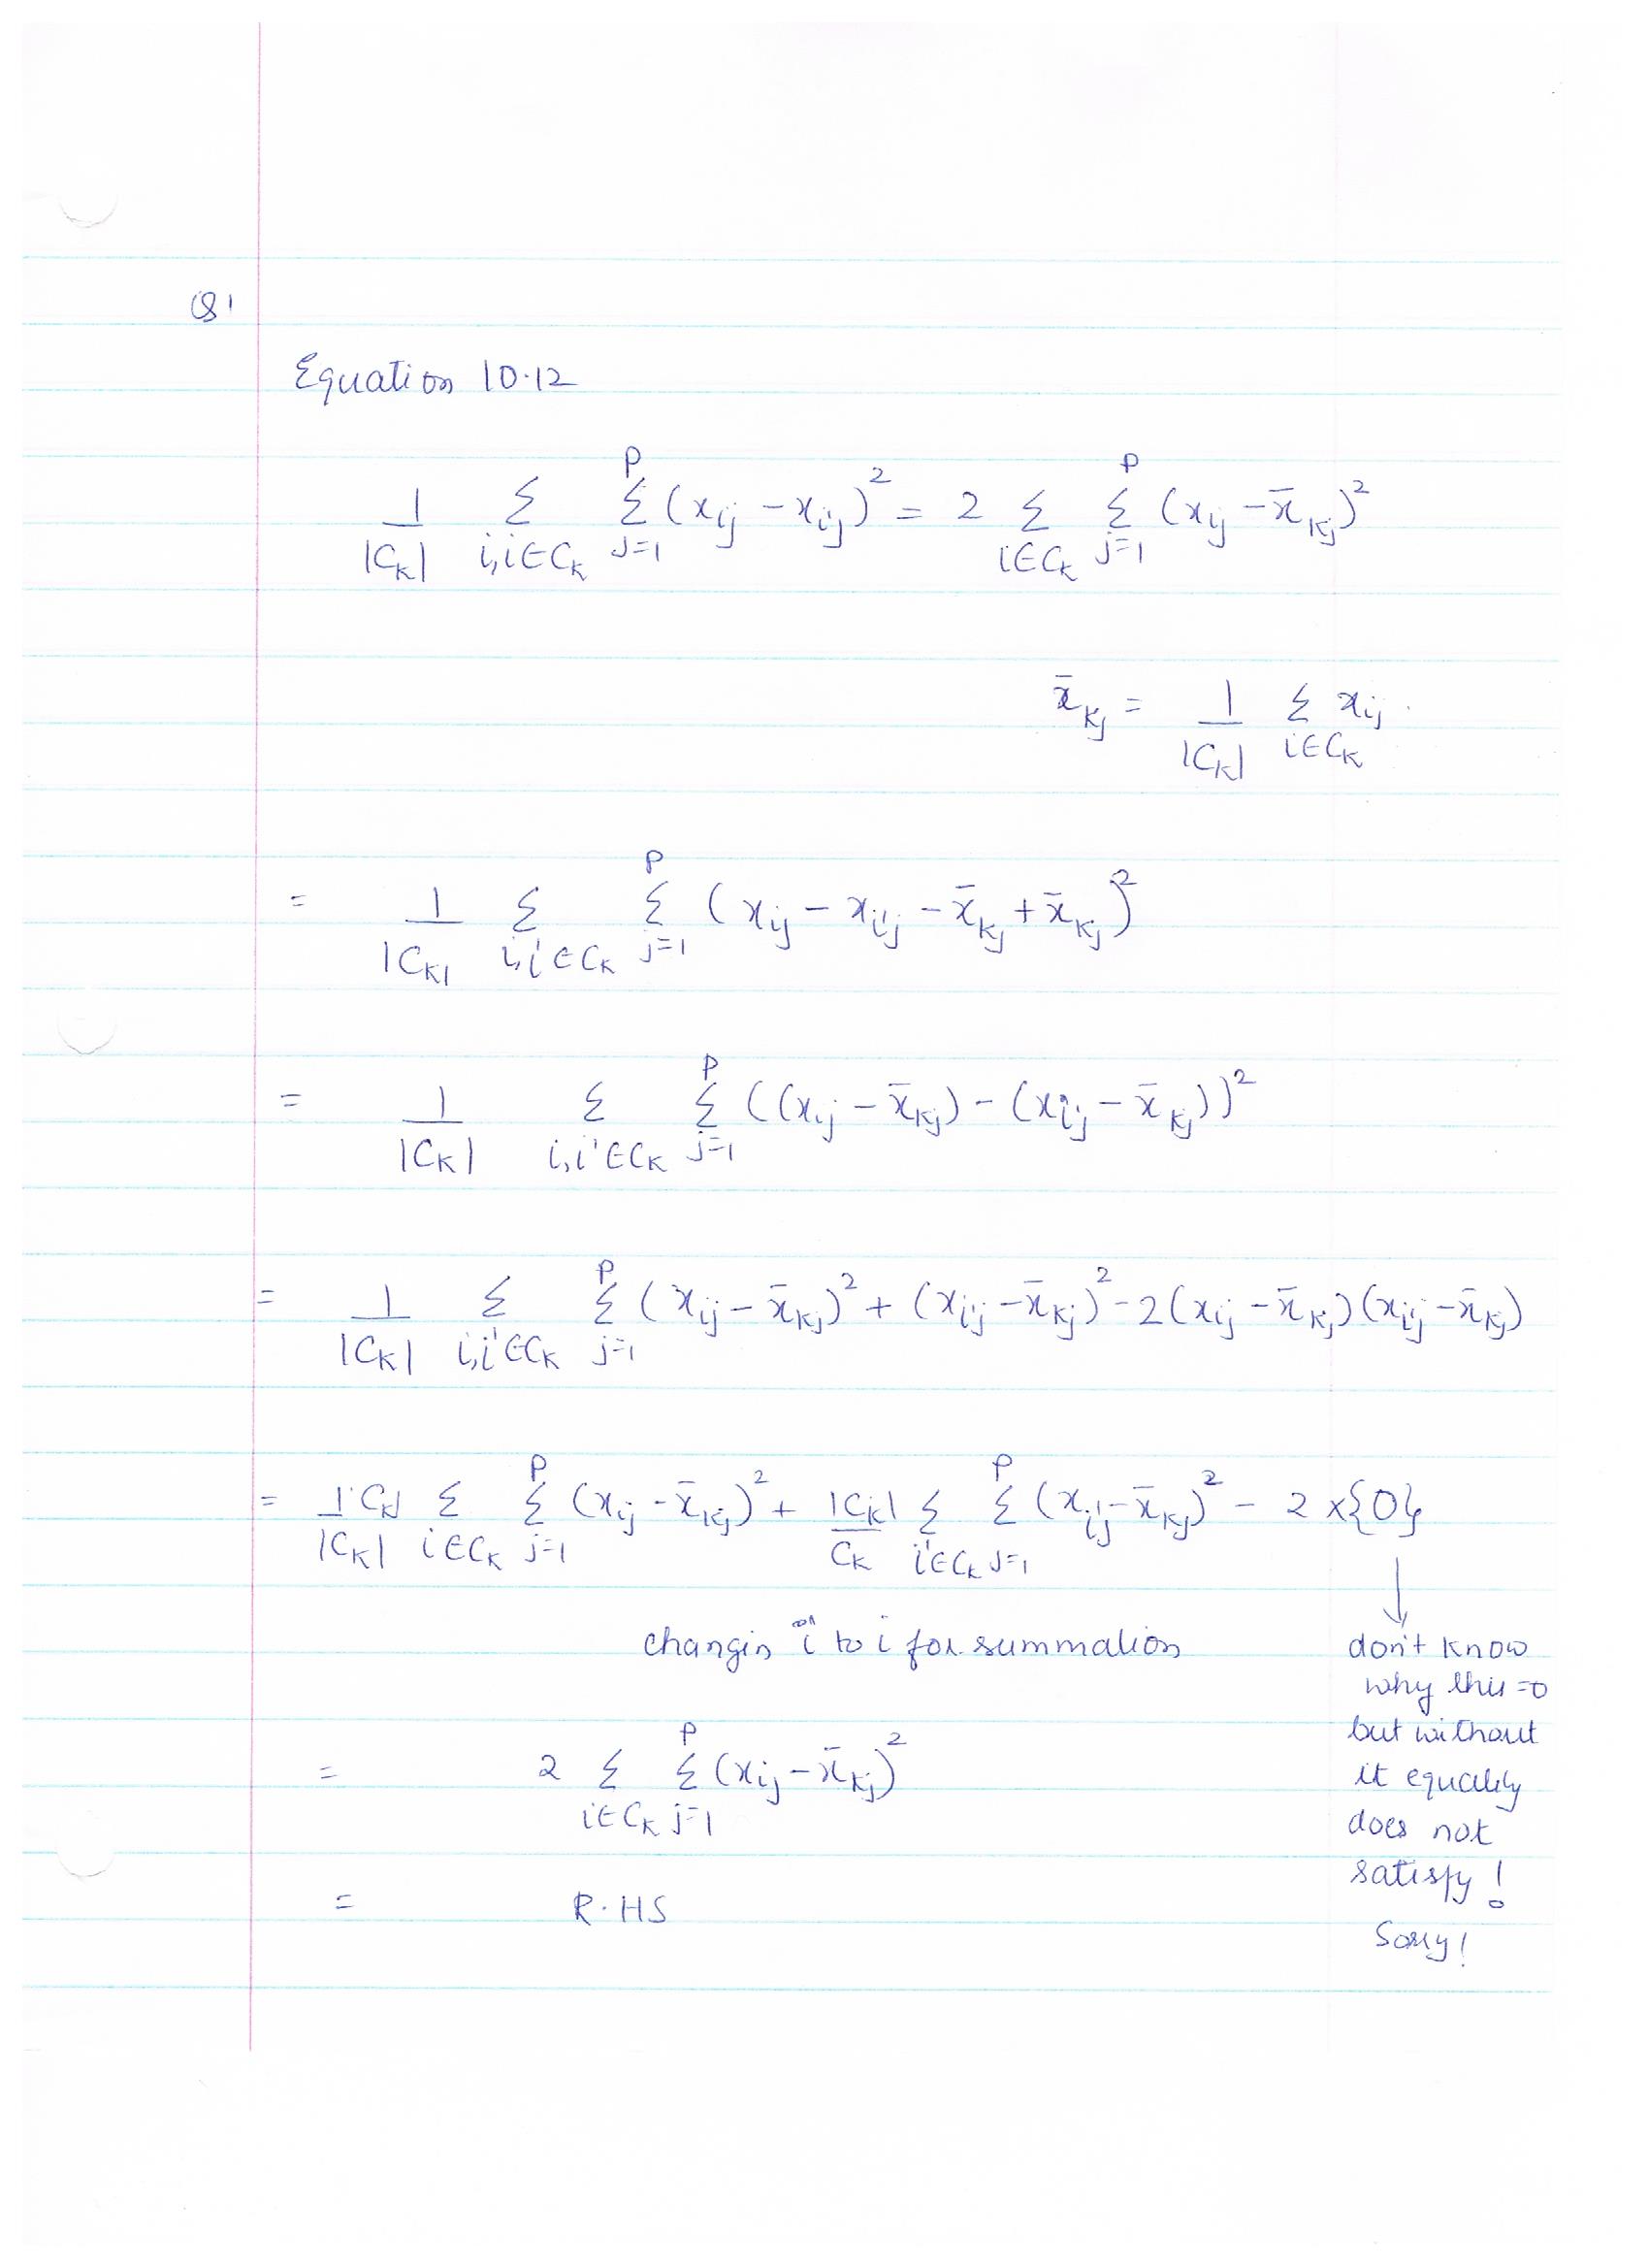 Q1
Equation 10.12
1/|C_K| Σ_{i,i∈C_K} Σ_{j=1}^{P} (x_{ij} − x_{ij})² = 2 Σ_{i∈C_K} Σ_{j=1}^{P} (x_{ij} − x̄_{Kj})²
x̄_{Kj} = 1/|C_K| Σ_{i∈C_K} x_{ij}.
= 1/|C_K| Σ_{i,i'∈C_K} Σ_{j=1}^{P} (x_{ij} − x_{i'j} − x̄_{Kj} + x̄_{Kj})²
= 1/|C_K| Σ_{i,i'∈C_K} Σ_{j=1}^{P} ((x_{ij} − x̄_{Kj}) − (x_{i'j} − x̄_{Kj}))²
= 1/|C_K| Σ_{i,i'∈C_K} Σ_{j=1}^{P} (x_{ij} − x̄_{Kj})² + (x_{i'j} − x̄_{Kj})² − 2(x_{ij} − x̄_{Kj})(x_{i'j} − x̄_{Kj})
= |C_K|/|C_K| Σ_{i∈C_K} Σ_{j=1}^{P} (x_{ij} − x̄_{Kj})² + |C_K|/C_K Σ_{i'∈C_K} Σ_{j=1}^{P} (x_{i'j} − x̄_{Kj})² − 2 x{0}
changin i to i for summation
don't know
why this =0
but without
it equality
does not
satisfy!
Sorry!
= 2 Σ_{i∈C_K} Σ_{j=1}^{P} (x_{ij} − x̄_{Kj})²
= R.HS